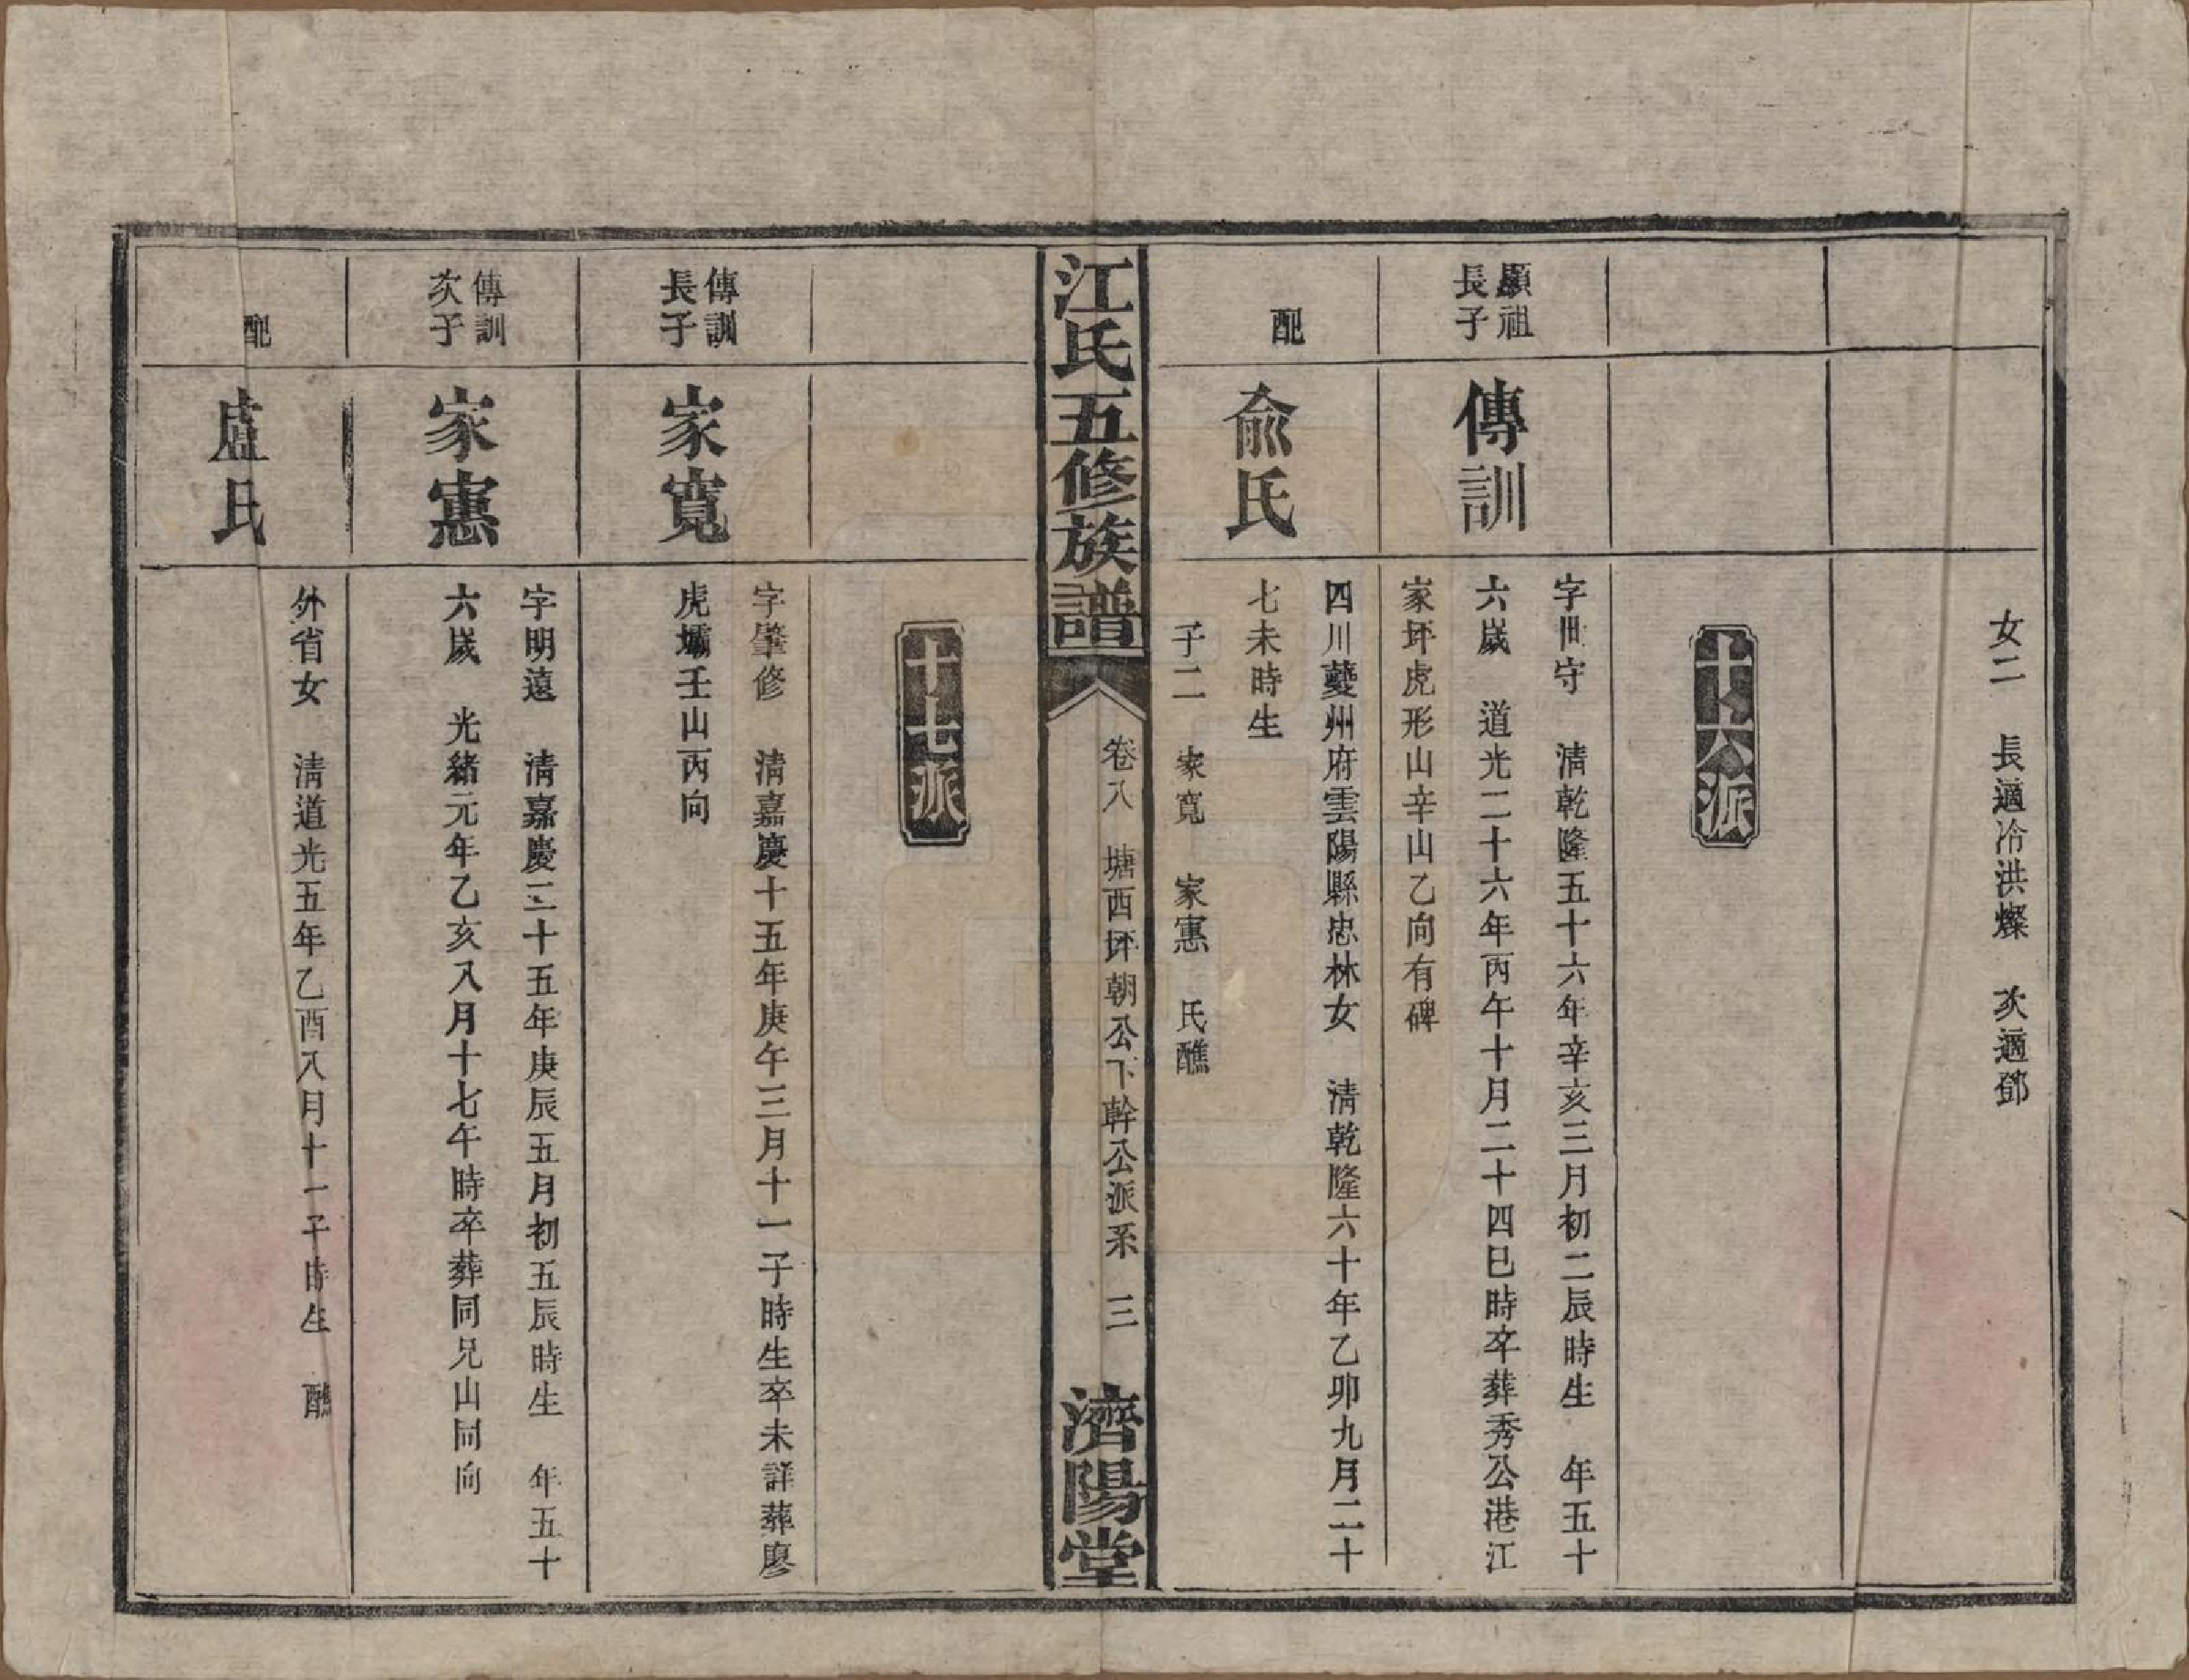 女二　長適冷洪燦　次適鄧
十六派
顯祖
長子
傳訓
字世守　清乾隆五十六年辛亥三月初二辰時生　年五十
六歲　道光二十六年丙午十月二十四巳時卒葬秀公港江
家坪虎形山辛山乙向有碑
配
俞氏
四川夔州府雲陽縣忠林女　清乾隆六十年乙卯九月二十
七未時生
子二　家寬　家憲　氏醮
江氏五修族譜
卷八　塘西坪朝公下幹公派系　三
濟陽堂
十七派
傳訓
長子
家寬
字肇修　清嘉慶十五年庚午三月十一子時生卒未詳葬廖
虎壩壬山丙向
傳訓
次子
家憲
字明遠　清嘉慶二十五年庚辰五月初五辰時生　年五十
六歲　光緒元年乙亥八月十七午時卒葬同兄山同向
配
盧氏
外省女　清道光五年乙酉八月十一子時生　醮